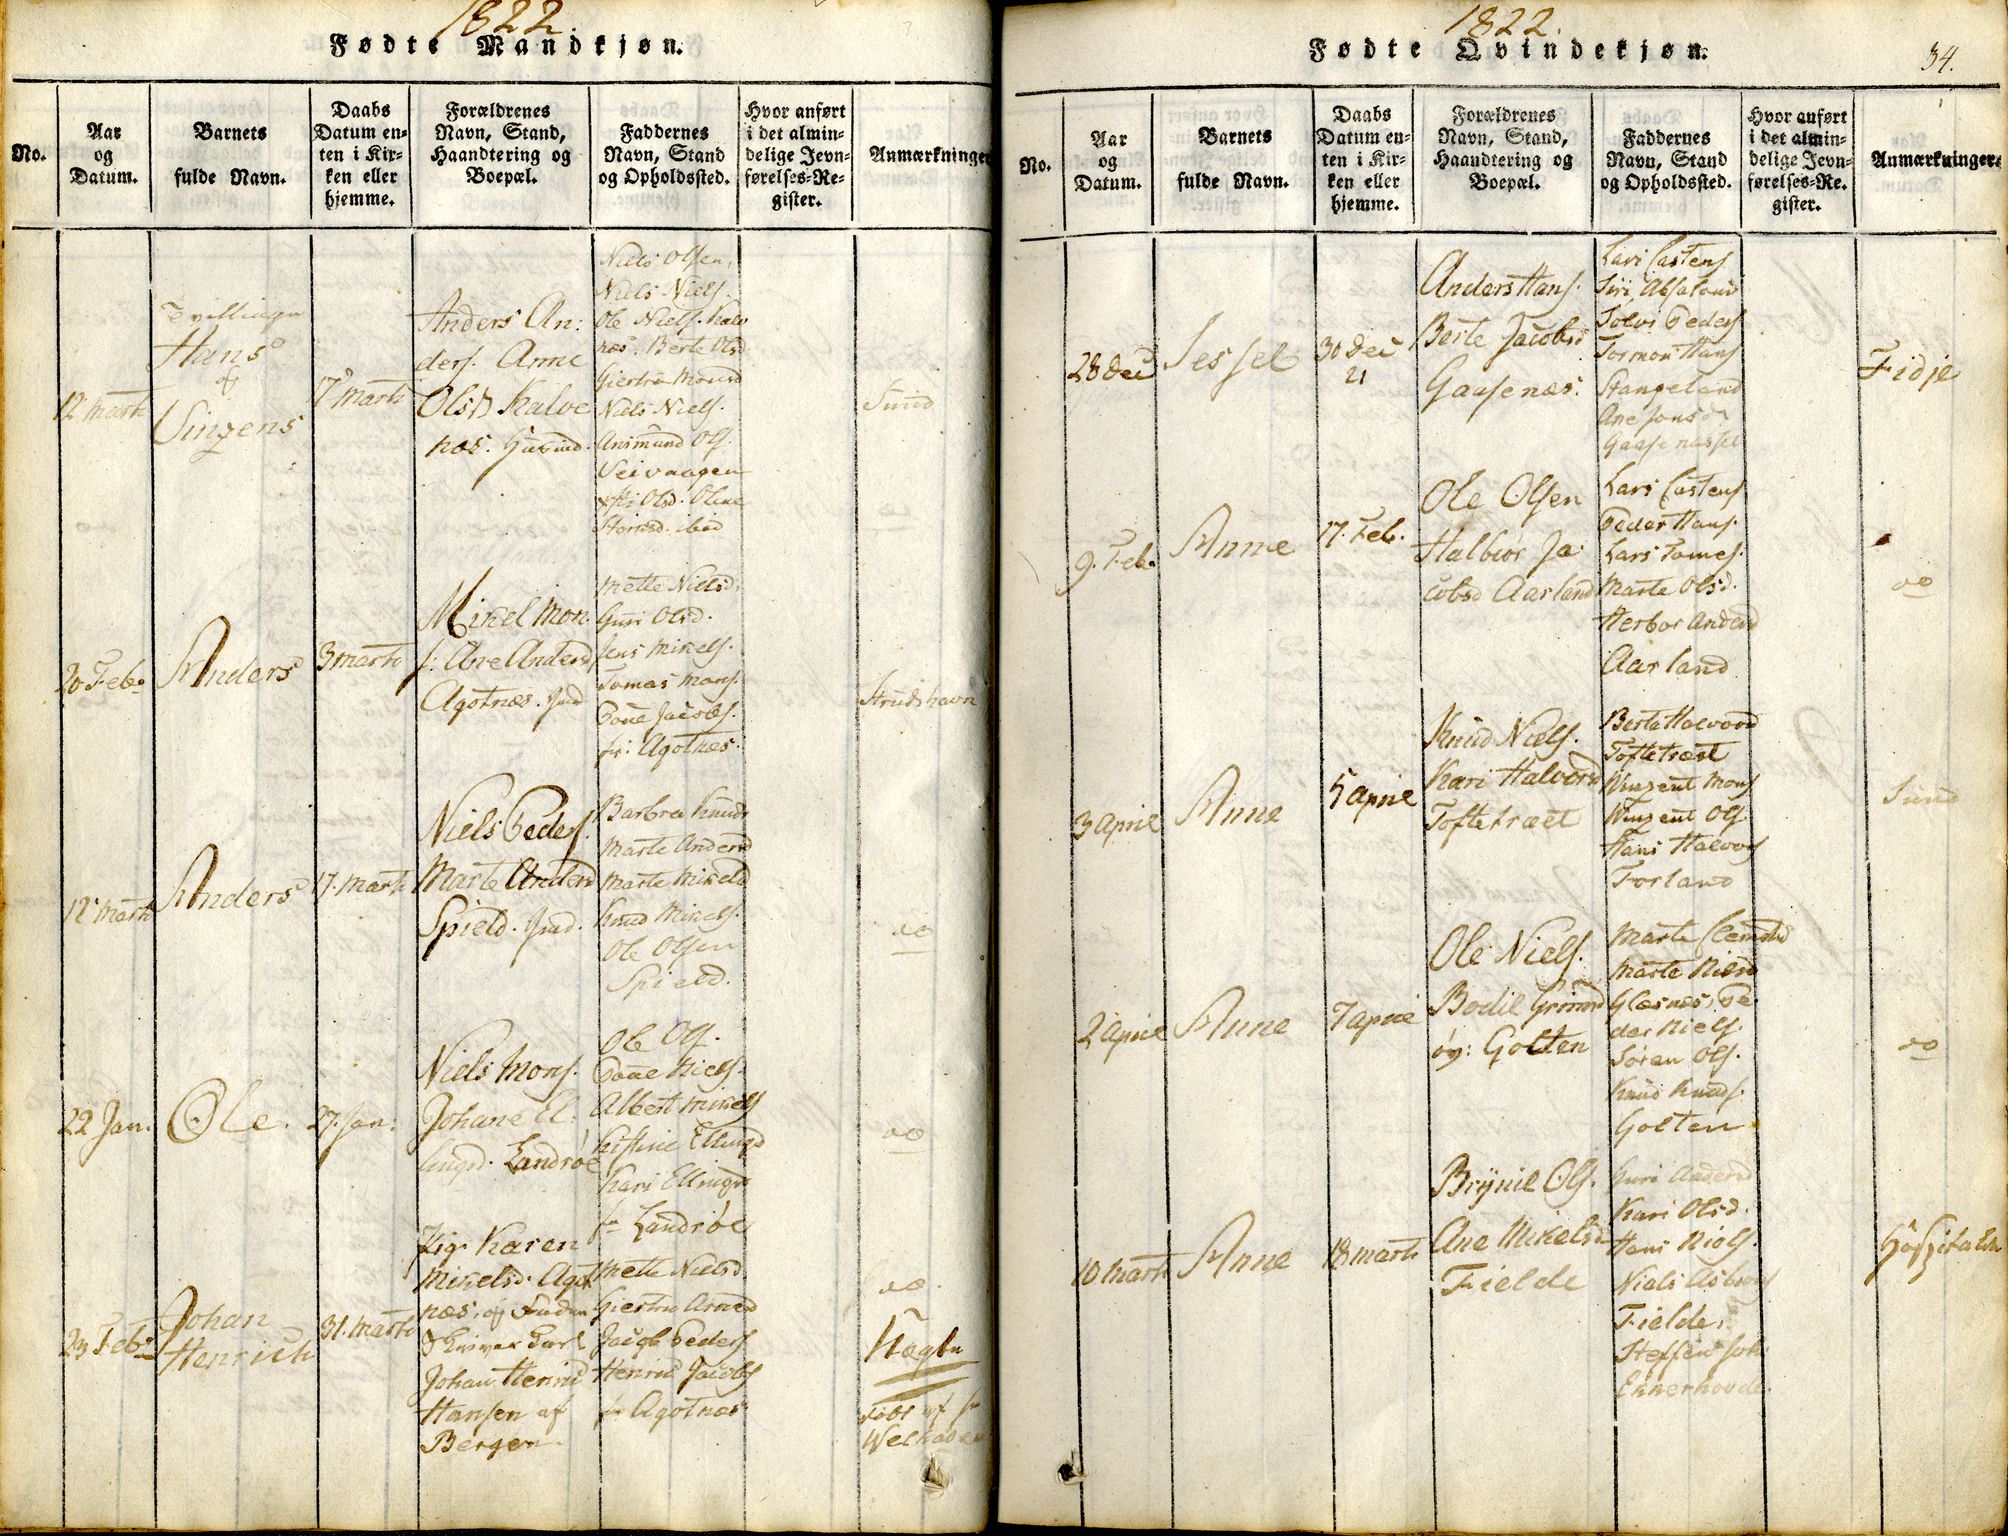 1822.
Fødte Mandkjøn.
No.
Aar
og
Datum.
Barnets
fulde Navn.
Daabs
Datum en-
ten i Kir-
ken eller
hjemme.
Forældrenes
Navn, Stand,
Haandtering og
Boepæl.
Faddernes
Navn, Stand
og Opholdssted.
Hvor anført
i det almin-
delige Jevn-
førelses-Re-
gister.
Anmærkninger
12 Marti
Tvillinger
Hans
og
Vinzens
17 Marti
Anders An:
ders. Anne
Olsd Kalve
næs.
Niels Olsen,
Niels Niels.
Ole Niels. Kalv
næs. Berte Olsd
Giertru Monsd
Niels Niels.
Ansmund Ols.
Veivaagen
Olsd. Oline
ibid
Sund
20 Feb.
Anders
3 Marti
Mikel Mon
s: Ane Andersd
Agotnæs.
Mette Nielsd.
Guri Olsd.
Jens Mikels.
Tomas Mons.
Jacobs.
Agotnæs.
Strudshavn
12 Marti
Anders
17. Marti
Niels Peders.
Marte Andersd
Spield.
Barbroe Knuds
Marte Andersd
Marte Mikelsd
Knud Mikels.
Ole Olsen
Spield.
do
22 Jan.
Ole.
27. Jan:
Niels Mons.
Johane El:
lingsd. Landrøe
Ole Ols.
Niels.
Albert Mikels
Kistine Ellingsd
Kari Ellingsd
Landrøe
do
23 Feb.
Johan
Henrich
31. Marti
Pige Karen
Mikelsd. Agot
næs, og
Johan Henrid
Hansen af
Bergen.
Mette Nielsd.
Giertru Arnesd
Jacob Peders
Henrid Jacobs
Agotnæs
do.
Uægte
døbt af
1822.
Fødte Qvindekjøn.
34.
No.
Aar
og
Datum.
Barnets
fulde Navn.
Daabs
Datum en-
ten i Kir-
ken eller
hjemme.
Forældrenes
Navn, Stand,
Haandtering og
Boepæl.
Faddernes
Navn, Stand
og Opholdssted.
Hvor anført
i det almin-
delige Jevn-
førelses-Re-
gister.
Anmærkninger.
28 Dec
Sessel
30 Dec
21
Anders Hans.
Berte Jacobsd
Gaasenæs.
Lars Castens
Siri
Tolvi Peders
Tormon Hans
Stangeland
Ane Jonsd
Fidje
9. Feb.
Anne
17. Feb.
Ole Olsen
Halbior Ja
cobsd Aarland
Lars Castens
Peder Hans.
Lars Tomes.
Marte Olsd.
Herbor Andersd
Aarland
do
3 April
Anne
5 April
Knud Niels.
Kari Halvorsd
Toftetræet
Berte Halvord
Toftetræet
Winzent Mons
Winzent Ols.
Hans Halvors
Forland
Sund
2 April
Anne
7 April
Ole Niels.
Bodil Grimsd
øv: Golten
Marte Clemetsd
Marte Nielsd
Glæsnæs, Pe
der Niels.
Søren Ols.
Knud Knuds.
Golten
do
10 Marti
Anne
18 Marti
Brynil Ols.
Ane Mikelsd
Fielde
Guri Andersd
Kari Olsd.
Hans Niels.
Niels
Fielde,
Steffen Joh.
Ekkerhovde.
Hospitalet